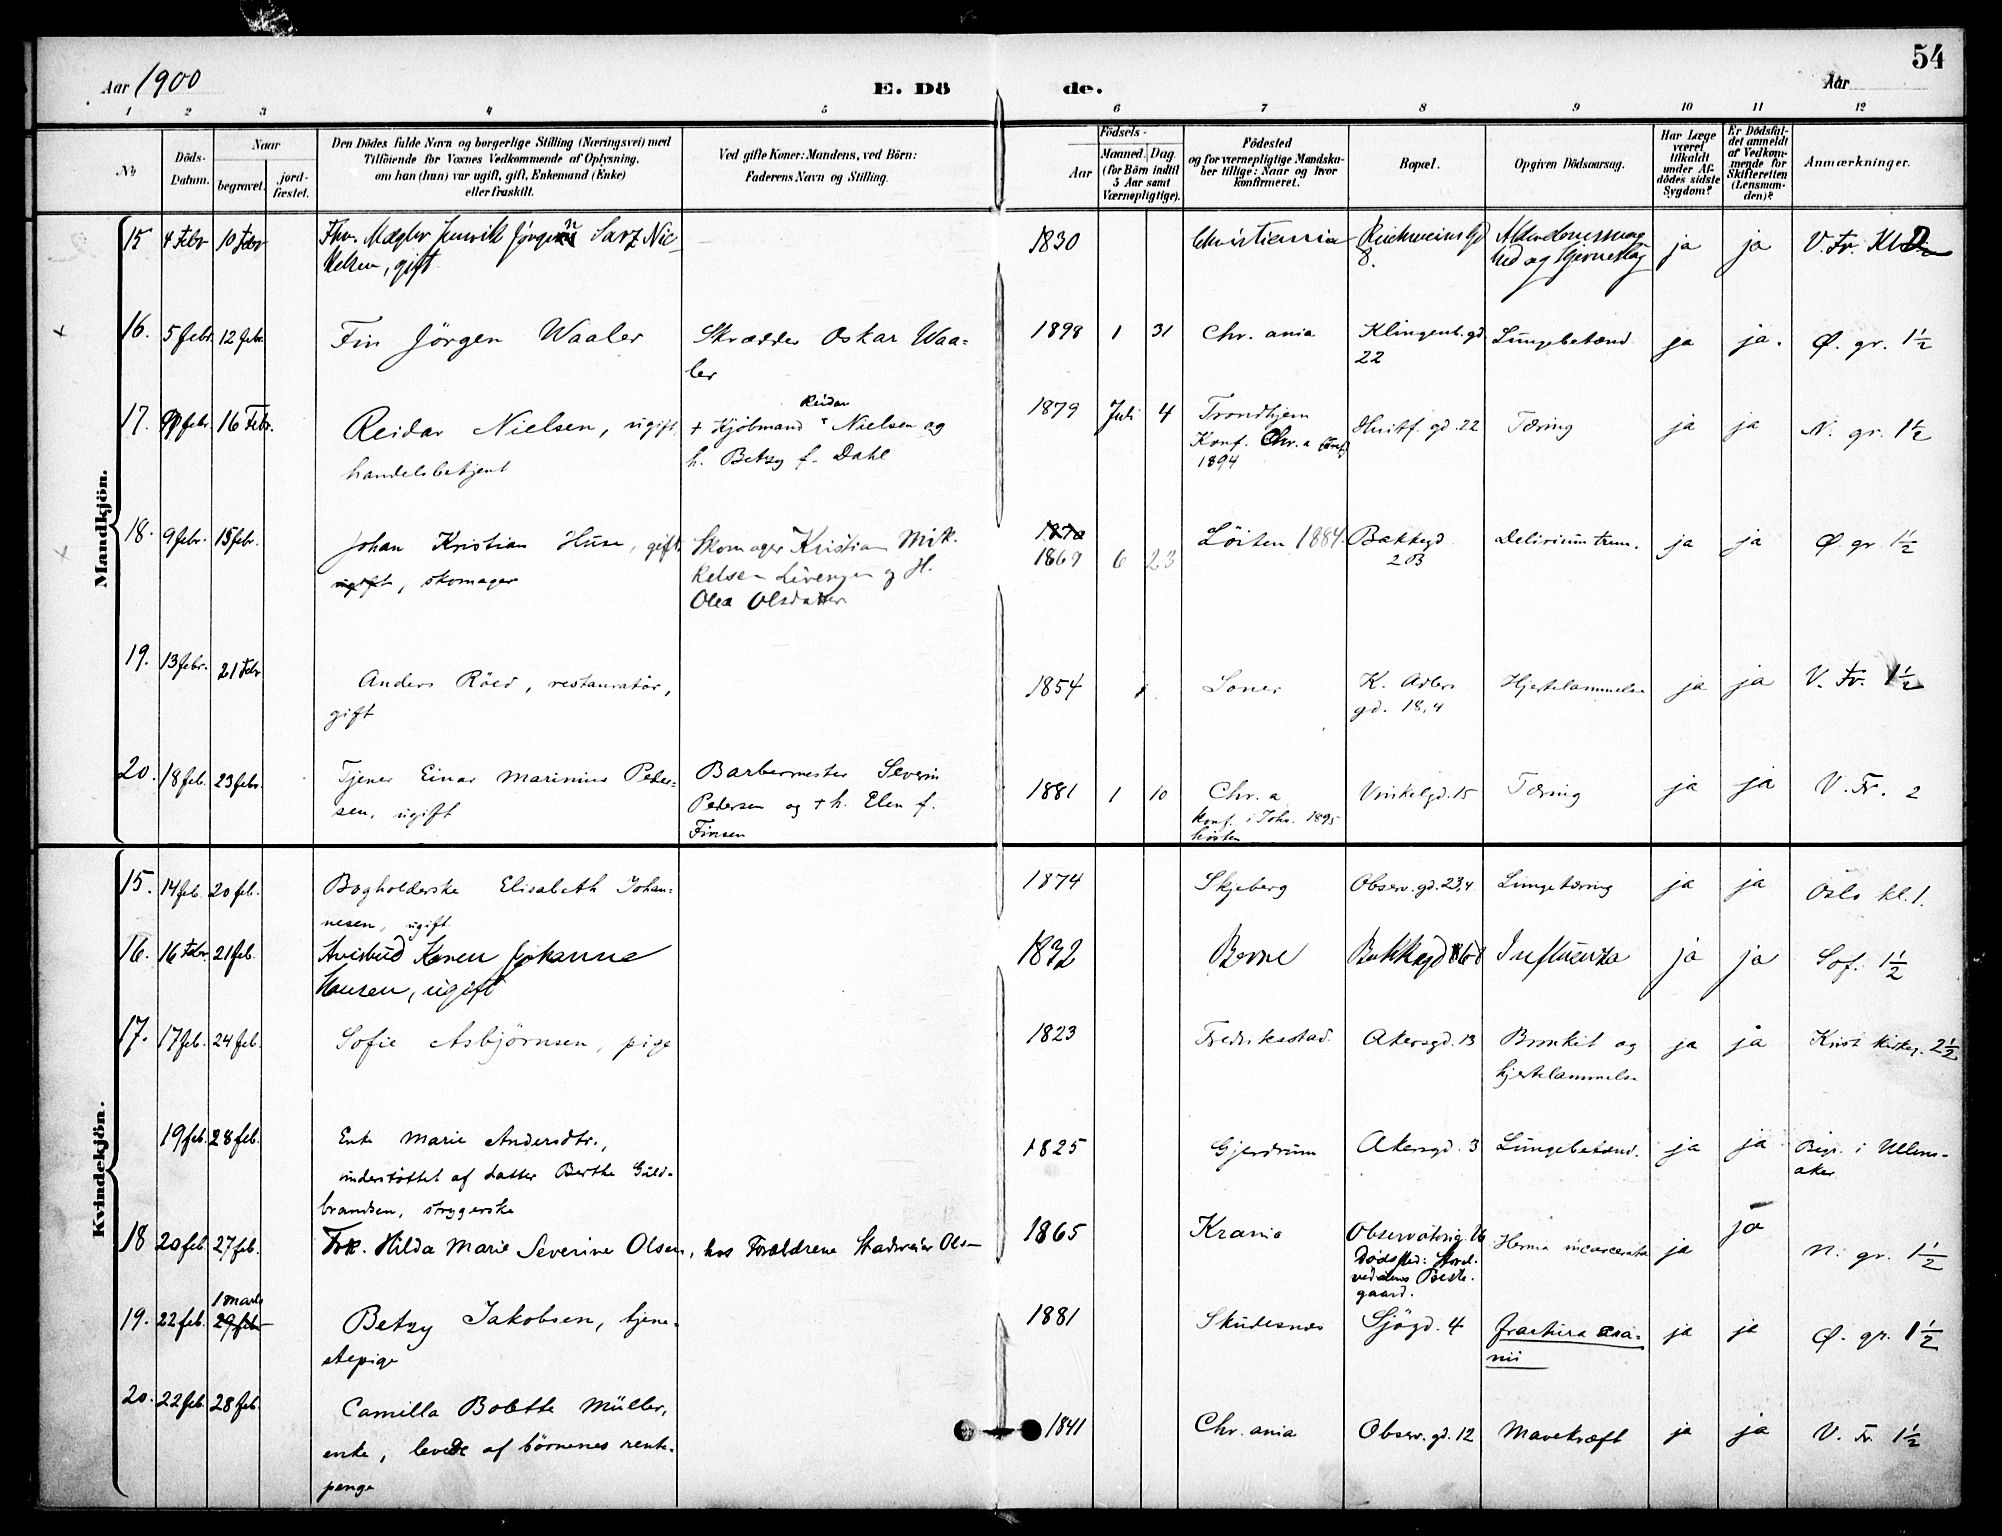 54
Aar 1900
E. Dö
de.
Aar
1 2 3 4 5 6 7 8 9 10 11 12
No
Döds-
Datum.
Naar
begravet.
jord-
fæstet.
Den Dödes fulde Navn og borgerlige Stilling (Næringsvei) med
Tilföiende for Voxnes Vedkommende af Oplysning,
om han (hun) var ugift, gift, Enkemand (Enke)
eller fraskilt.
Ved gifte Koner: Mandens, ved Börn:
Faderens Navn og Stilling.
Födsels-
Aar
Maaned. Dag
(for Börn indtil
5 Aar samt
Værnepligtige).
Födested
og for værnepligtige Mandska-
ber tillige: Naar og hvor
konfirmeret.
Bopæl.
Opgiven Dödsaarsag.
Har Læge
været
tilkaldt
under Af-
dödes sidste
Sygdom?
Er Dödsfal-
det anmeldt
af Vedkom-
mende for
Skifteretten
(Lensman-
den)?
Anmærkninger.
Mandkjön.
15 4 Febr 10 Febr Fhv. Mægler Sarz Nic- 1830 Christiania ja ja V. Fr.
kelsen, gift 8.
16. 5 febr. 12 febr. Fin Jörgen Waaler Skrædder Oskar Waa- 1898 1 31 Chr. ania Klingenb.gd. Lungebetænd. ja ja. Ø. gr. 1½
ler 22
17. 9 febr. 16 Febr. Reidar Nielsen, ugift, + Kjöbmand Reidar Nielsen og 1879 Juli 4 Trondhjem Huitf. gd. 22 Tæring ja ja N. gr. 1½
handelsbetjent h. Betzy f. Dahl Konf. Chr.a
1894
18. 9 febr. 15 febr. Johan Kristian Huse, gift Skomager Kristian Mik- 1870 Löiten 1884. Bakkegd. Delirium trem. ja ja Ø. gr. 1½
ugift, skomager kelsen Livengen og H. 1869 6 23 2B
Olea Olsdatter
19. 13 febr. 21 Febr Anders Röed, restauratör, 1854 Soner K. Adlers Hjertelammelse ja ja V. Fr. 1½
gift gd. 18,4
20. 18 feb. 23 febr. Tjener Einar Marinius Peder- Barbermester Severin 1881 1 10 Chr. a Vinkelgd. 15 Tæring ja ja V. Fr. 2
sen, ugift Pedersen og + h. Elen f. konf. i Joh. 1895
Finsen hösten
Kvindekjön.
15. 14 feb. 20 feb. Bogholderske Elisabeth Johan- 1874 Skjeberg Observ. gd. 23,4 Lungetæring ja ja Oslo kl. 1.
nesen, ugift
16. 16 Febr 21 feb. Avisbud Karen Johanne 1832 Berne Bakkegd Influenza ja ja Sof. 1½
Hansen, ugift
17. 17 feb. 24 feb. Sofie Asbjörnsen, pige 1823 Fredriksstad. Akersgd. 13 Bronkit og ja ja Krist kirkeg. 2½
hjertelammelse
19 feb. 28 feb. Enke Marie Andersdtr., 1825 Gjerdrum Akersgd. 3 Lungebetænd. ja ja Begr. i Ullens-
understöttet af datter Berthe Guld- aker
brandsen, strygerske
18 20 feb. 27 feb. Frk. Hilda Marie Severine Olsen, hos Forældrene Stadsveier Ols- 1865 Krania Observatorig. 16 Hernia incarcerata ja ja N. gr. 1½
Dödssted:
gaard.
19. 22 feb. 1 marts 29 feb. Betzy Jakobsen, tjene- 1881 Skudesnæs Sjögd. 4 fractura cra- ja ja Ø. gr. 1½
stepige nii
20. 22 feb. 28 feb. Camilla Bolette Müller, 1841 Chr. ania Observ. gd. 12 Mavekræft ja ja V. Fr. 1½
enke, levede af börnenes rente-
penge